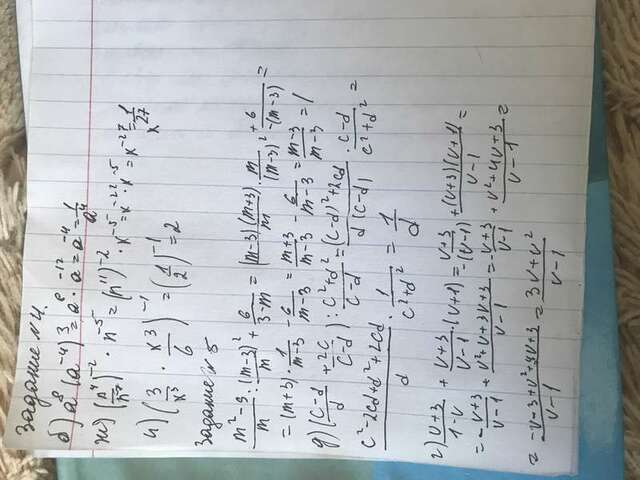 Задание № 4.
б) a⁸ (a⁻⁴)³ = a⁸ · a⁻¹² = a⁻⁴ = 1/a⁴
ж) (n⁴/n⁻⁷)⁻² · n⁻⁵ = (n¹¹)⁻² · x⁻⁵ = x⁻²² · x⁻⁵ = x⁻²⁷ = 1/x²⁷
и) (3/x³ · x³/6)⁻¹ = (1/2)⁻¹ = 2
Задание № 5
(m²-9)/m : (m-3)²/m + 6/(3-m) = (m-3)(m+3)/m · m/(m-3)² + 6/(-(m-3)) =
= (m+3) · 1/(m-3) - 6/(m-3) = (m+3)/(m-3) - 6/(m-3) = (m-3)/(m-3) = 1
д) ((c-d)/d + 2c/(c-d)) : (c²+d²)/(c-d) = ((c-d)²+2cd)/(d(c-d)) · (c-d)/(c²+d²) =
(c²-2cd+d²+2cd)/d · 1/(c²+d²) = 1/d
г) (v+3)/(1-v) + (v+3)/(v-1) · (v+1) = (v+3)/(-(v-1)) + (v+3)(v+1)/(v-1) =
= -(v+3)/(v-1) + (v²+v+3v+3)/(v-1) = -(v+3)/(v-1) + (v²+4v+3)/(v-1) =
= (-v-3+v²+4v+3)/(v-1) = (3v+v²)/(v-1)